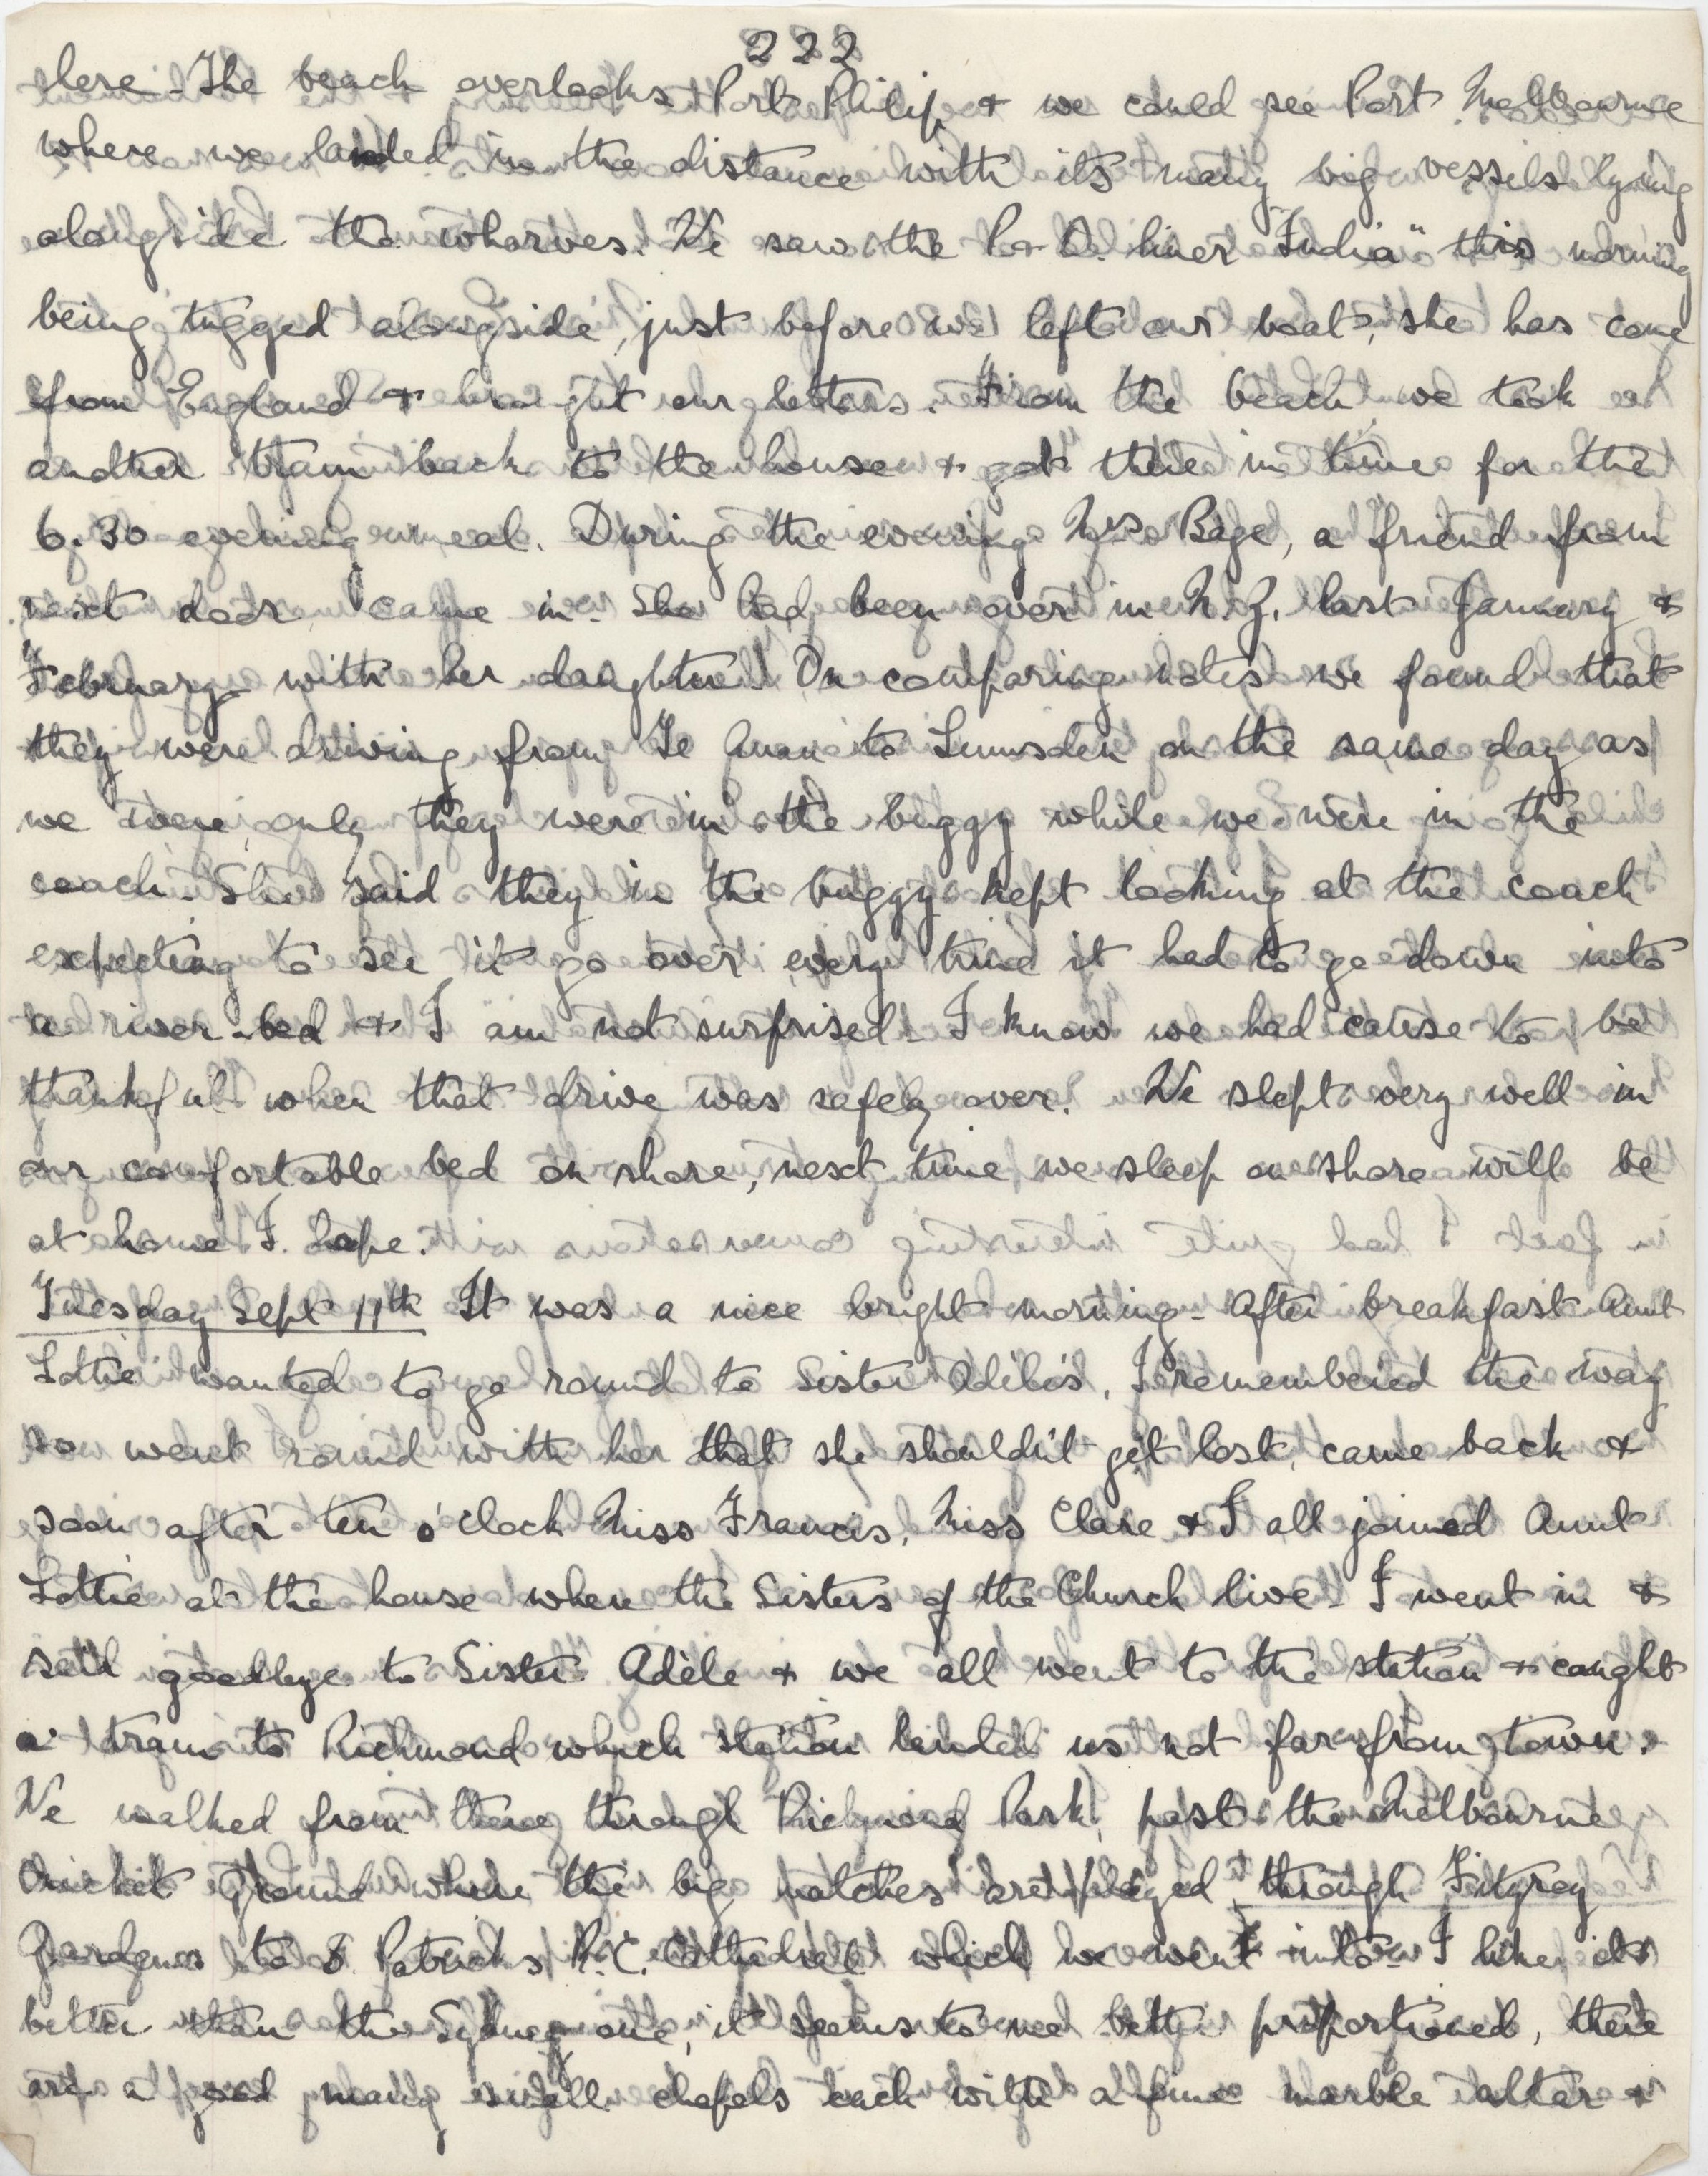 222
here. The beach overlooks Port Philip, & we could see Port Melbourne
where we landed in the distance with its many big vessels lying
alongside the wharves. We saw the P & O. liner "India" this morning
being tugged alongside, just before we left our boat, she has come
from England & brought our letters. From the beach we took
another tram back to the house & got there in time for the
6.30 evening meal. During the evening Mrs Bage, a friend from
next door came in. She had been over in N.Z. last January &
February with her daughter. On comparing notes we found that
they were driving from Te Anau to Lumsden on the same day as
we were, only they were in the buggy while we were in the
coach. She said they in the buggy kept looking at the coach
expecting to see it go over every time it had to go down into
a river-bed & I am not surprised. I know we had cause to be
thankful when that drive was safely over. We slept very well in
our comfortable bed on shore, next time we sleep on shore will be
at home I hope.
Tuesday Sept 11th It was a nice bright morning. After breakfast Aunt
Lottie wanted to go round to Sister Adèle's, I remembered the way
so went round with her that she shouldn't get lost, came back &
soon after ten o'clock Miss Francis, Miss Clare & I all joined Aunt
Lottie at the house where the Sisters of the Church live. I went in &
said goodbye to Sister Adèle & we all went to the station & caught
a train to Richmond which station landed us not far from town.
We walked from there through Richmond Park, past the Melbourne
Cricket Ground where the big matches are played, through Fitzroy
Gardens to S. Patricks R.C. Cathedral which we went into. I like it
better than the Sydney one, it seems to me better proportioned, there
are a good many small chapels each with a fine marble alter &